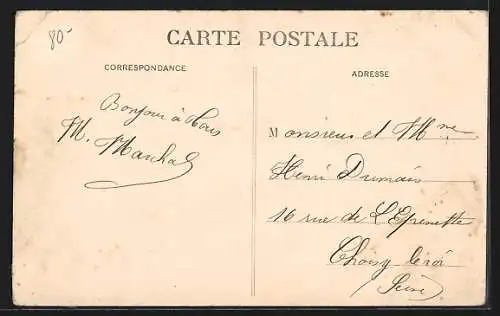 80-
CARTE POSTALE
CORRESPONDANCE
Bonjour à tous
M. Marchal
ADRESSE
Monsieur et Mme
Henri Dumais
16 rue de L'Epinette
Choisy le roi
Seine